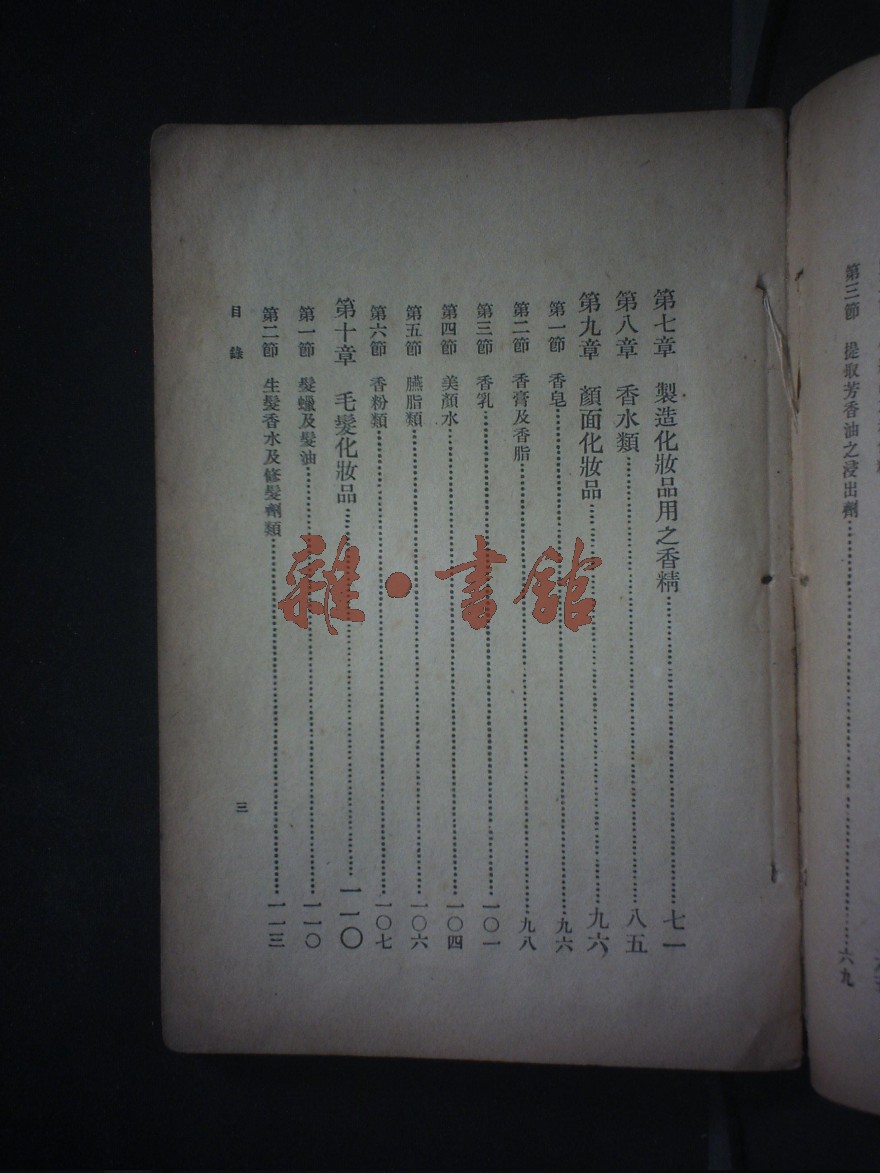 第三節 提取芳香油之浸出劑……六九
第七章 製造化妝品用之香精……七一
第八章 香水類……八五
第九章 顏面化妝品……九六
第一節 香皂……九六
第二節 香膏及香脂……九八
第三節 香乳……一〇一
第四節 美顏水……一〇四
第五節 臙脂類……一〇六
第六節 香粉類……一〇七
第十章 毛髮化妝品……一一〇
第一節 髮蠟及髮油……一一〇
第二節 生髮香水及修髮劑類……一一三
目錄 三
雜·書館